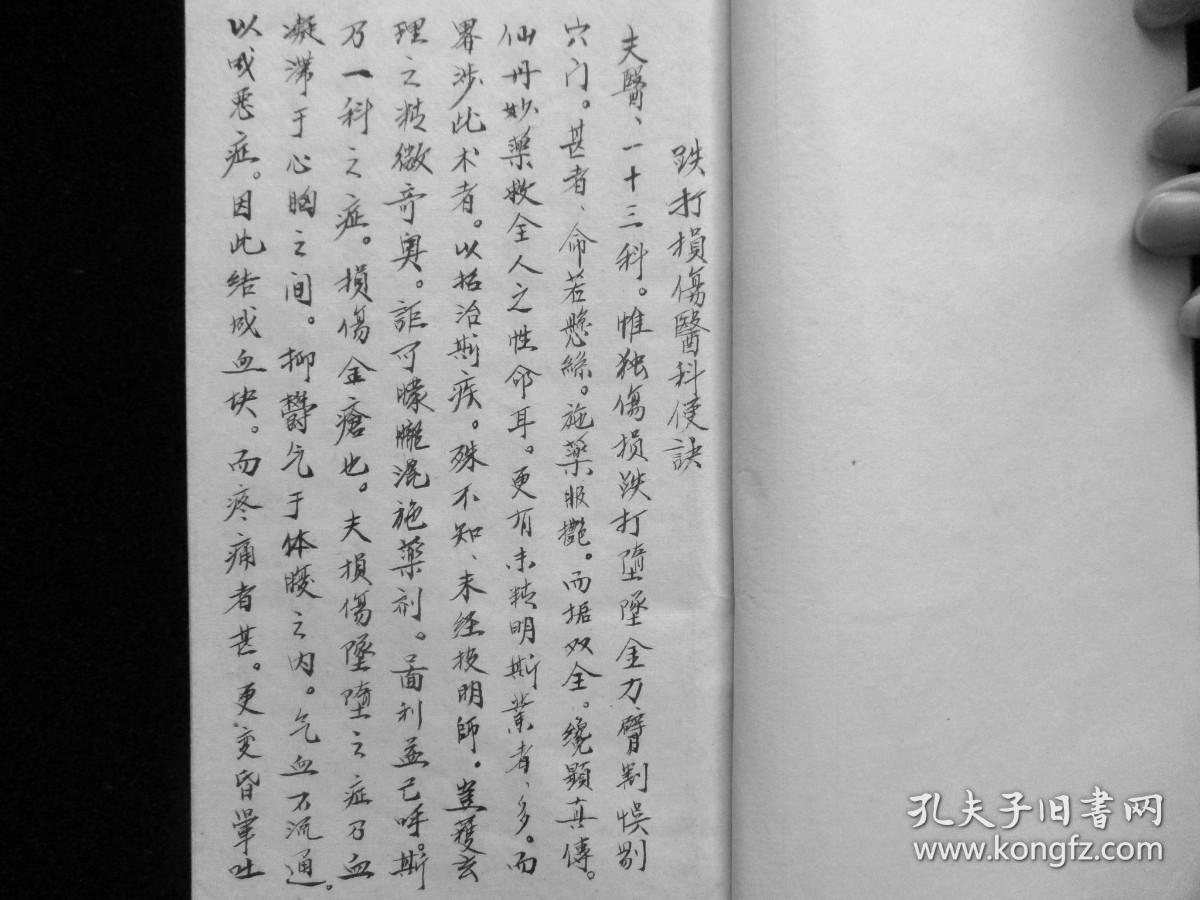 跌打損傷醫科便訣
夫醫、一十三科。惟独傷损跌打墮墜金刀臂割悞剔
穴门。甚者、命若懸絲。施藥服搽。而振双全。纔顯真傳。
仙丹妙藥救全人之性命耳。更有未精明斯業者、多。而
畧涉此术者。以招治斯疾。殊不知、未经投明師。豈獲玄
理之精微奇奥。詎可矇矓混施藥剂。啚利益己呼。斯
乃一科之症。損傷金瘡也。夫損傷墜墮之症乃血
凝滞于心胸之间。抑欝气于体腰之内。气血不流通。
以成恶症。因此结成血块。而疼痛者甚。更变昏暈吐
孔夫子旧书网
www.kongfz.com